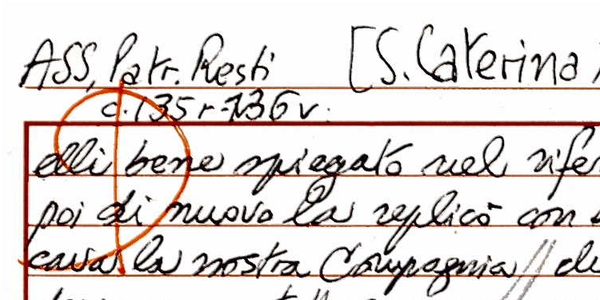 ASS, Patr. Resti [S. Caterina
c. 135r-136v.
elli bene spiegato nel rife
poi di nuovo la replicò con
cava la nostra Compagnia / di